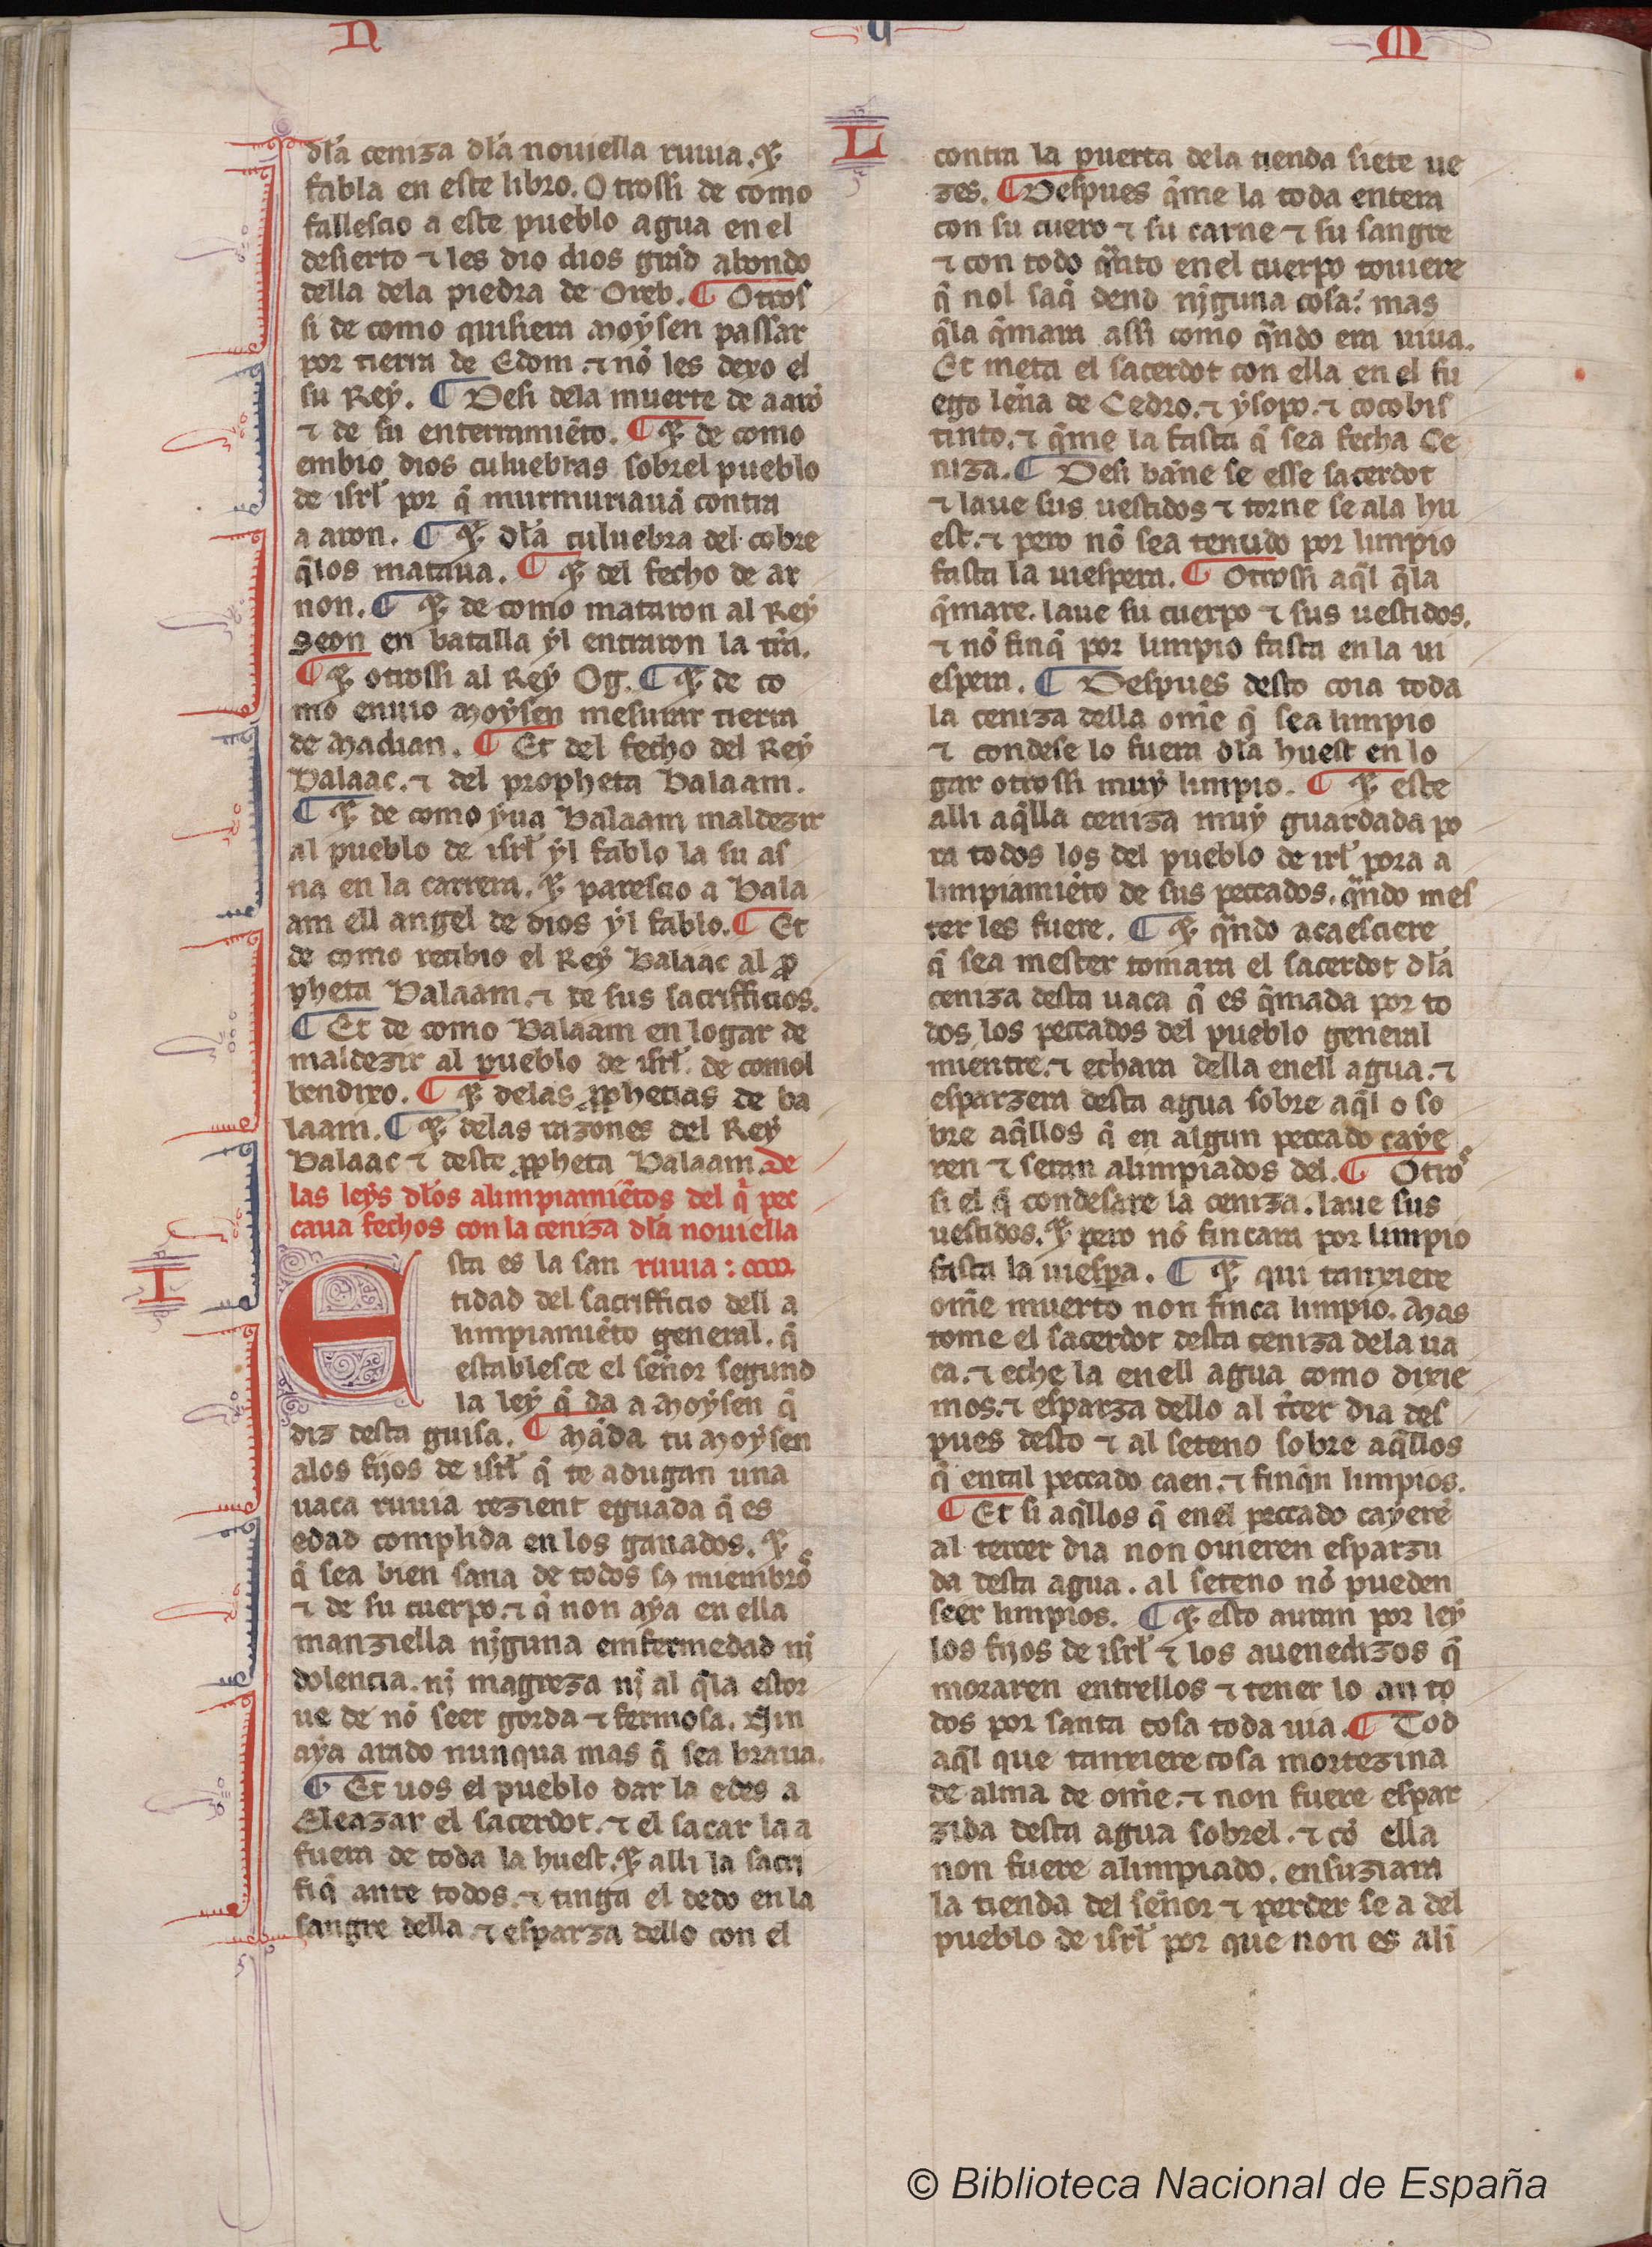 N U M
dła ceniza dła nouiella ruuia. ⁊
fabla en este libro. Otrossi de como
fallescio a este pueblo agua en el
desierto ⁊ les dio dios grãd abondo
della dela piedra de Oreb. ¶ Otros
si de como quisiera Moysen passar
por tierra de Edom. ⁊ nõ les dexo el
su Rey. ¶ Desi dela muerte de aarõ
⁊ de su enterramiẽto. ¶ ⁊ de como
embio dios culuebras sobrel pueblo
de isrł por q̃ murmuriauã contra
aaron. ¶ ⁊ dła culuebra del cobre
q̃los mataua. ¶ ⁊ del fecho de ar
non. ¶ ⁊ de como mataron al Rey
Seon en batalla yl entraron la tr̃a.
¶ ⁊ otrossi al Rey Og. ¶ ⁊ de co
mo enuio Moysen mesurar tierra
de Madian. ¶ Et del fecho del Rey
Balaac. ⁊ del propheta Balaam.
¶ ⁊ de como yua Balaam maldezir
al pueblo de isrł yl fablo la su as
na en la carrera. ⁊ parescio a Bala
am ell angel de dios yl fablo. ¶ Et
de como recibio el Rey Balaac al ꝓ
pheta Balaam. ⁊ de sus sacrifficios.
¶ Et de como Balaam en logar de
maldezir al pueblo de isrł. de comol
bendixo. ¶ ⁊ delas ꝓphecias de ba
laam. ¶ ⁊ delas razones del Rey
Balaac ⁊ deste ꝓpheta Balaam. De
las leys dłos alimpiamiẽtos del q̃ pec
caua fechos con la ceniza dła nouiella
H
Esta es la san ruuia:
tidad del sacrifficio dell a
limpiamiẽto general. q̃
establesce el señor segund
la ley q̃ da a Moysen q̃
diz desta guisa. ¶ Mãda tu Moysen
alos fijos de isrł q̃ te adugan una
uaca ruuia rezient eguada q̃ es
edad complida en los ganados. ⁊
q̃ sea bien sana de todos sꝰ miembros
⁊ de su cuerpo. ⁊ q̃ non aya en ella
manziella njguna emfermedad nj
dolencia. nj magreza nj al q̃la estor
ue de nõ seer gorda ⁊ fermosa. Nin
aya arado nunqua mas q̃ sea braua.
¶ Et uos el pueblo dar la edes a
Eleazar el sacerdot. ⁊ el sacar la a
fuera de toda la huest. ⁊ alli la sacri
fiq̃ ante todos. ⁊ tinga el dedo en la
sangre della ⁊ esparza dello con el
L
contra la puerta dela tienda siete ue
zes. ¶ Despues q̃me la toda entera
con su cuero ⁊ su carne ⁊ su sangre
⁊ con todo q̃nto en el cuerpo touiere
q̃ nol saq̃ dend njguna cosa: mas
q̃la q̃mara assi como q̃ndo era uiua.
Et meta el sacerdot con ella en el fu
ego leña de Cedro. ⁊ ysopo. ⁊ cocobis
tinto. ⁊ q̃me la fasta q̃ sea fecha Ce
niza. ¶ Desi bañe se esse sacerdot
⁊ laue sus uestidos ⁊ torne se ala hu
est. ⁊ pero nõ sea tenudo por limpio
fasta la uiespera. ¶ Otrossi aq̃l q̃la
q̃mare. laue su cuerpo ⁊ sus uestidos.
⁊ nõ finq̃ por limpio fasta en la ui
espera. ¶ Despues desto coia toda
la ceniza della om̃e q̃ sea limpio
⁊ condese lo fuera dła huest en lo
gar otrossi muy limpio. ¶ ⁊ este
alli aq̃lla ceniza muy guardada po
ra todos los del pueblo de irł pora a
limpiamiẽto de sus peccados. q̃ndo mes
ter les fuere. ¶ ⁊ q̃ndo acaesciere
q̃ sea mester tomara el sacerdot dła
ceniza desta uaca q̃ es q̃mada por to
dos los peccados del pueblo general
mientre. ⁊ echara della enell agua. ⁊
esparzera desta agua sobre aq̃l o so
bre aq̃llos q̃ en algun peccado caye
ren ⁊ seran alimpiados del. ¶ Otros
si el q̃ condesare la ceniza. laue sus
uestidos. ⁊ pero nõ fincara por limpio
fasta la uiespa. ¶ ⁊ qui tanxiere
om̃e muerto non finca limpio. Mas
tome el sacerdot desta ceniza dela ua
ca. ⁊ eche la enell agua como dixie
mos. ⁊ esparza dello al t̃cer dia des
pues desto ⁊ al seteno sobre aq̃llos
q̃ ental peccado caen. ⁊ finq̃n limpios.
¶ Et si aq̃llos q̃ enel peccado cayerẽ
al tercer dia non ouieren esparzu
da desta agua. al seteno nõ pueden
seer limpios. ¶ ⁊ esto auran por ley
los fijos de isrł ⁊ los auenedizos q̃
moraren entrellos ⁊ tener lo an to
dos por santa cosa toda uia. ¶ Tod
aq̃l que tanxiere cosa mortezina
de alma de om̃e. ⁊ non fuere espar
zida desta agua sobrel. ⁊ cõ ella
non fuere alimpiado. ensuziara
la tienda del señor ⁊ perder se a del
pueblo de isrł por que non es alĩ
© Biblioteca Nacional de España